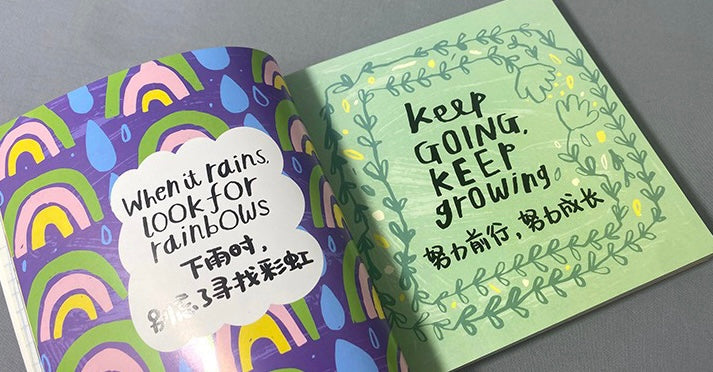 When it rains,
look for
rainbows
下雨时,
别忘了寻找彩虹
keep
GOING,
KEEP
growing
努力前行,努力成长